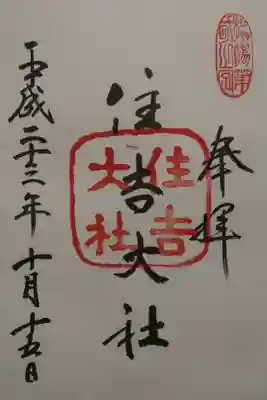 奉拝
住吉大社
住吉
大社
平成二十三年 十月 十五日